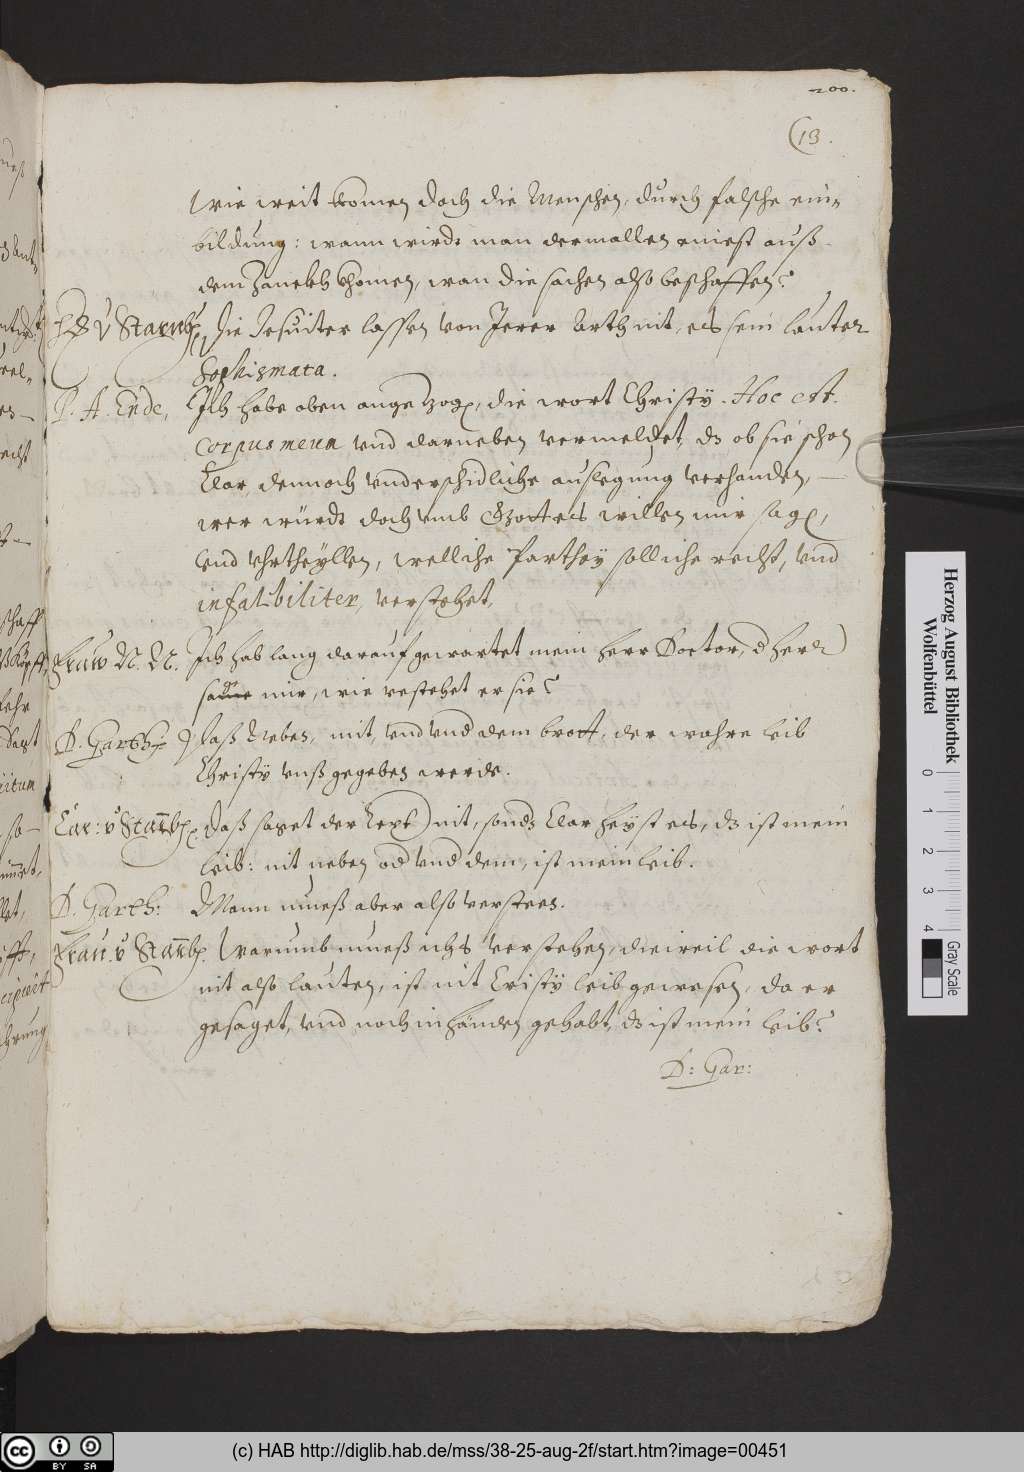 200.
(13.
Wie weit komen doch die Menschen, durch falsche ein=
bildung: wann wirdt man dermallen einest auß
dem Zanckh khomen, wan die sachen also beschaffen?
v Starnb. Die Jesuiter lassen von Jerer Arth nit, es sein lauter
Sophismata.
A. Ende, Ich habe oben angezog, die wort Christy. Hoc est
corpus meum vnd darneben vermeldet, dz ob sie schon
Clar, dennoch vnderschidliche auslegung verhanden,
wer würdt doch vmb Gottes willen mir sag,
vnd vhrtheyllen, welliche Parthey solliche recht, vnd
infalibiliter, verstehet,
Fraw N. N. Ich hab lang darauf gewartet mein Herr Doctor, d Herr
sag mir, wie verstehet er sie?
D. Garth: daß Neben, mit, vnd vnd dem brott, der wahre leib
Christy vnß gegeben werde.
Car: v Starnb. Daß saget der Text nit, sond Clar heyst es, dz ist mein
leib: nit neben od vnd dem, ist mein leib.
D. Garth: Mann mueß aber also versteen.
Frau. v Starnb. Warumb mueß ichs verstehen, dieweil die wort
nit also lauten, ist nit Cristy leib gewesen, da er
gesaget, vnd noch in händen gehabt, dz ist mein leib?
D: Gar:
Herzog August Bibliothek
Wolfenbüttel
0 1 2 3 4
Gray Scale
cc BY SA
(c) HAB http://diglib.hab.de/mss/38-25-aug-2f/start.htm?image=00451